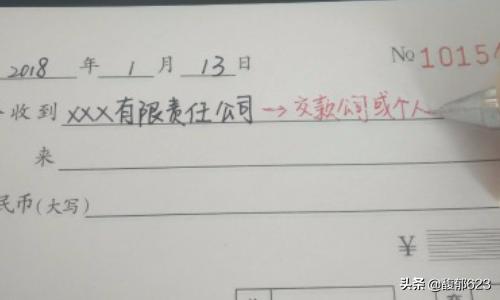 2018 年 1 月 13 日 No 10154
今收到 xxx有限责任公司 → 交款公司或个人
来
民币(大写)
¥
头条 @馥郁623